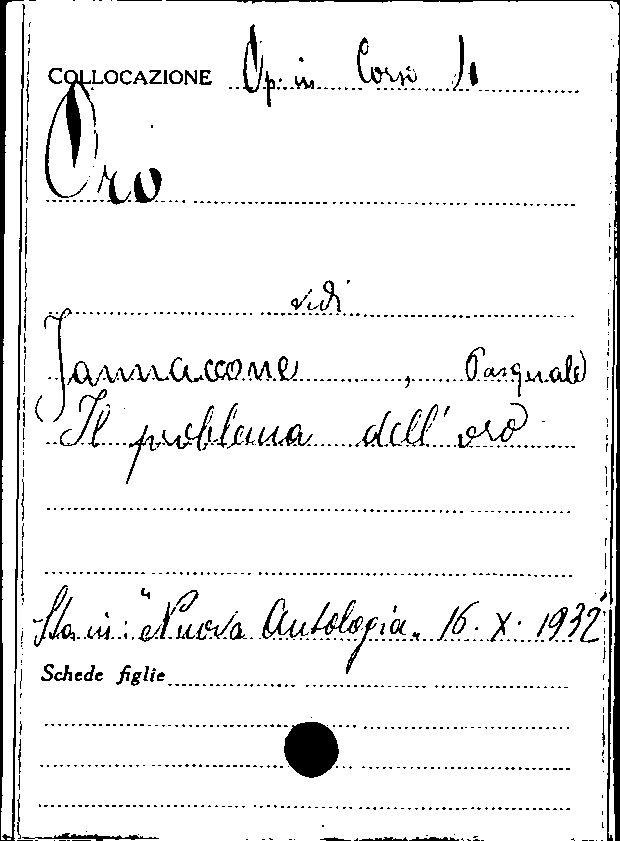 COLLOCAZIONE Op. in Corso
Oro
vidi
Jannaccone, Pasquale
Il problema dell'oro
Sta in: "Nuova Antologia„ 16. X. 1932
Schede figlie